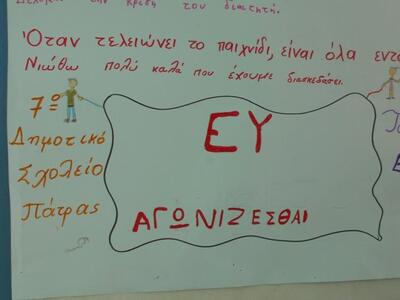 την κρίση του διαιτητή.
Όταν τελειώνει το παιχνίδι, είναι όλα
Νιώθω πολύ καλά που έχουμε διασκεδάσει.
7ο
Δημοτικό
Σχολείο
Πάτρας
ΕΥ
ΑΓΩΝΙΖΕΣΘΑΙ